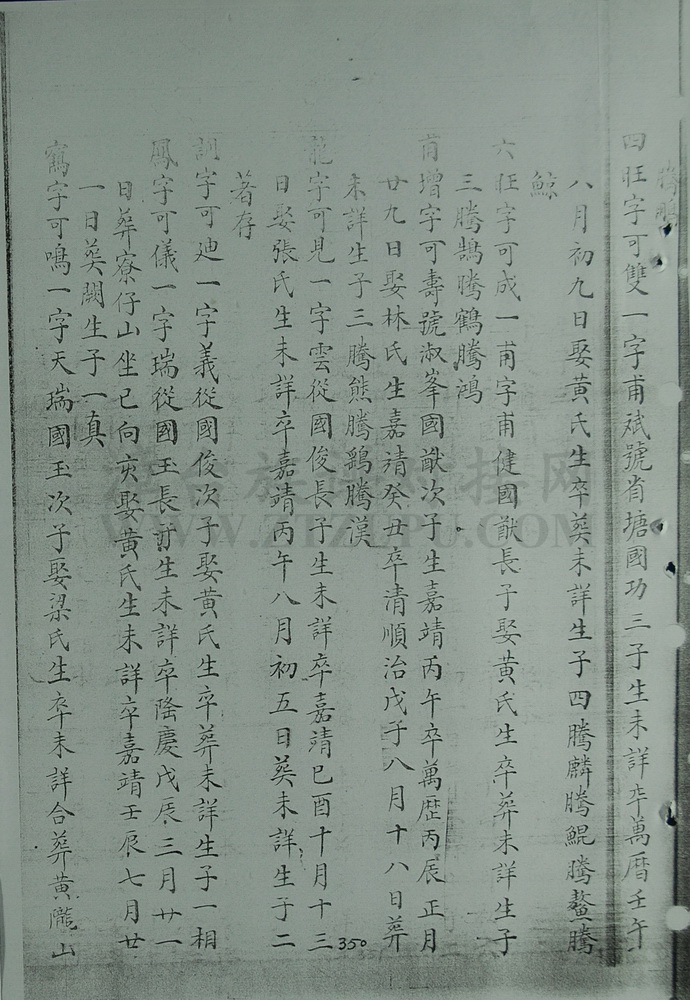 騰鵬
四旺字可雙一字甫斌號省塘國功三子生未詳卒萬曆壬午
八月初九日娶黃氏生卒葬未詳生子四騰麟騰鯤騰鰲騰
鯨
六旺字可成一甫字甫健國猷長子娶黃氏生卒葬未詳生子
三騰鵠騰鶴騰鴻
甫增字可壽號淑峯國猷次子生嘉靖丙午卒萬歷丙辰正月
廿九日娶林氏生嘉靖癸丑卒清順治戊子八月十八日葬
未詳生子三騰熊騰鷂騰漢
龍字可見一字雲從國俊長子生未詳卒嘉靖己酉十月十三
日娶張氏生未詳卒嘉靖丙午八月初五日葵未詳生子二
著存
訓字可廸一字義從國俊次子娶黃氏生卒葬未詳生子一相
鳳字可儀一字瑞從國玉長子生未詳卒隆慶戊辰三月廿一
日葬寮仔山坐巳向亥娶黃氏生未詳卒嘉靖壬辰七月廿
一日葵闕生子一真
鳴一字天瑞國玉次子娶梁氏生卒未詳合葬黃隴山
350
WWW.ZTZUPU.COM